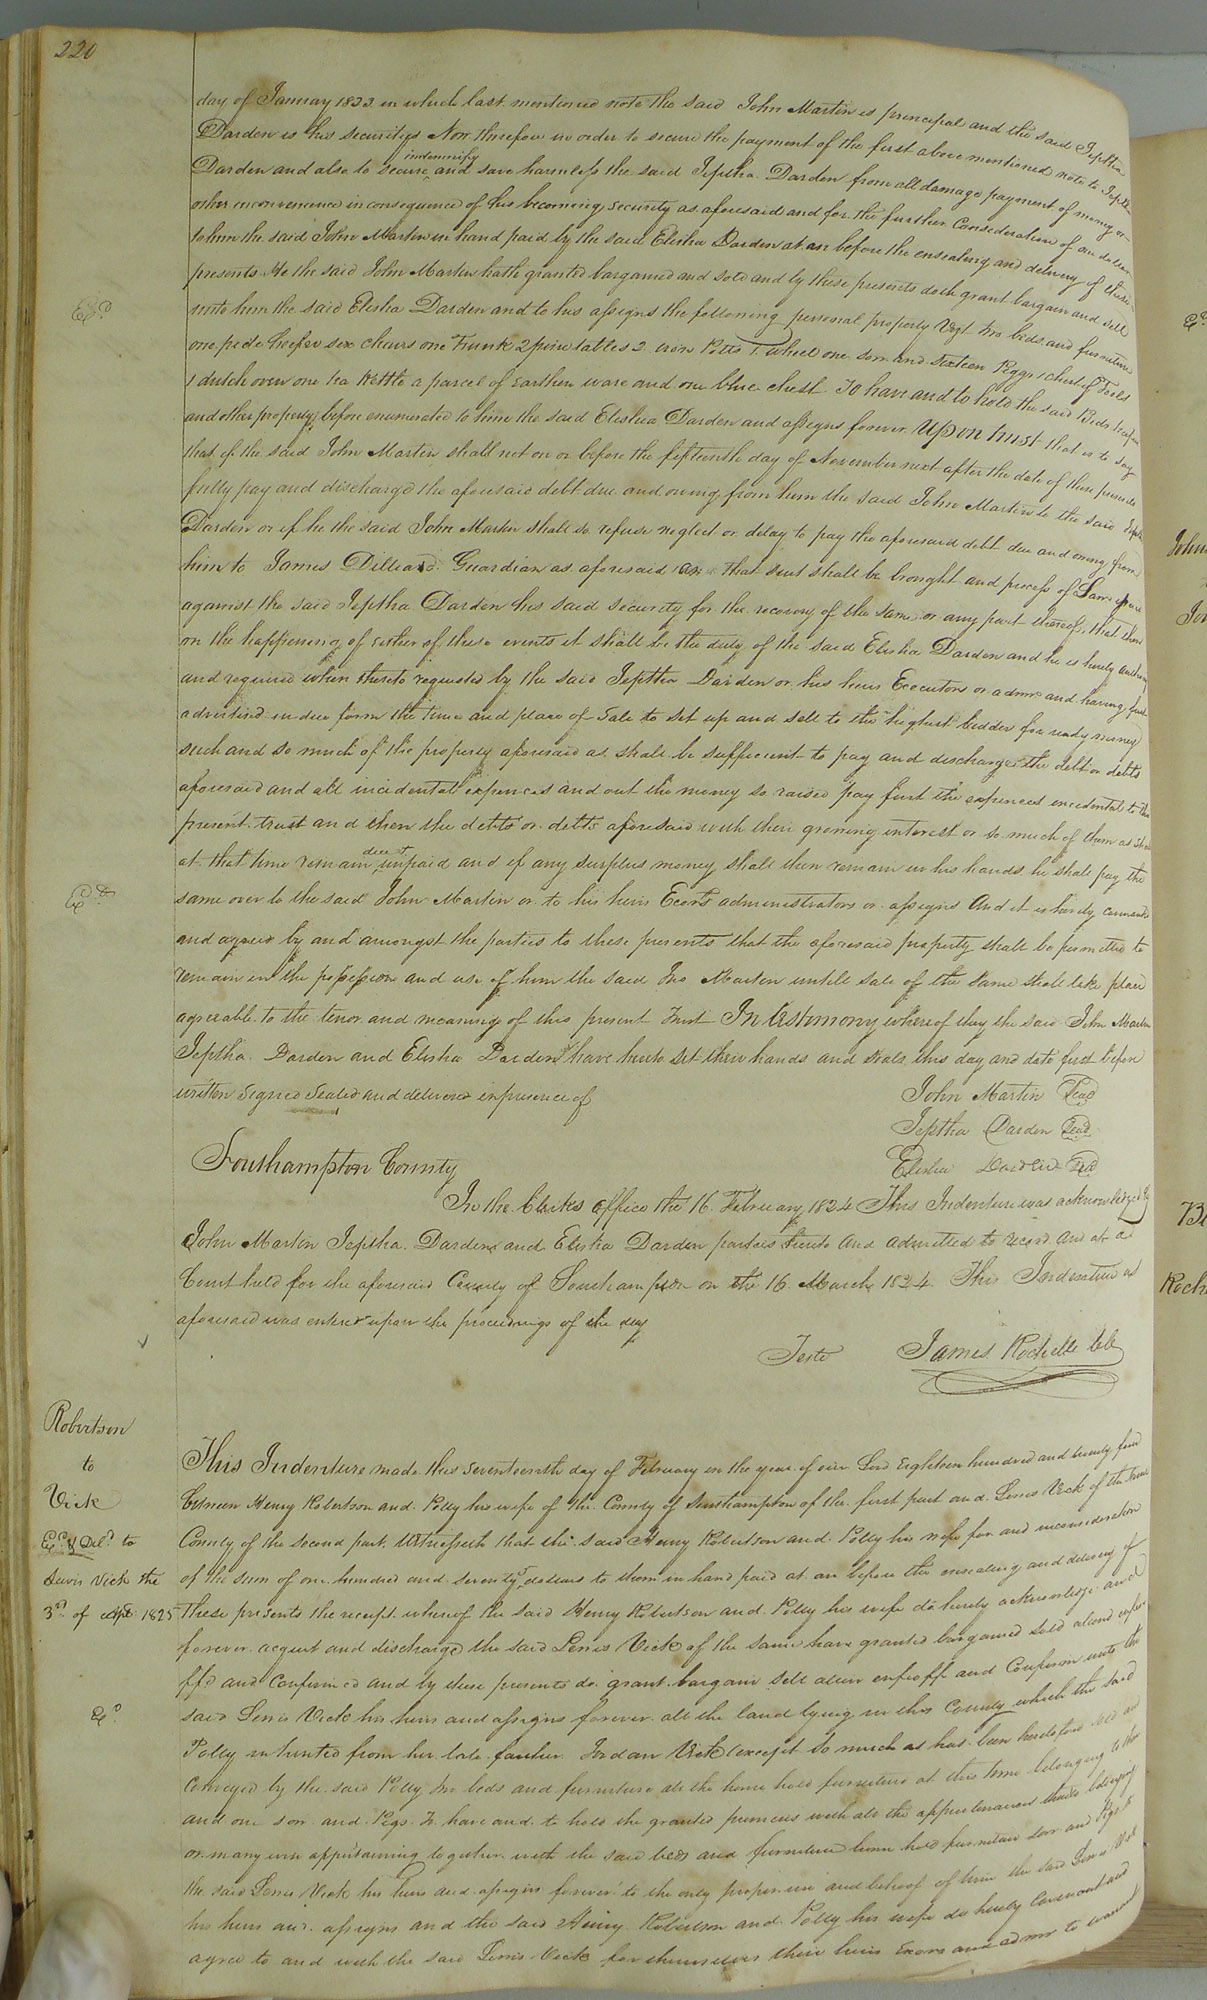 220
day of January 1823 in which last mentioned note the said John Martin is principal and the said Jeptha
Darden is his security Now therefore in order to secure the payment of the first above mentioned note to Jeptha
indemnify
Darden and also to secure and save harmless the said Jeptha Darden from all damage payment of money or
other inconvenience in consequence of his becoming security as aforesaid and for the further Consideration of one dollar
to him the said John Martin in hand paid by the said Elisha Darden at or before the ensealing and delivery of these
presents He the said John Martin hath granted bargained and sold and by these presents doth grant bargain and sell
unto him the said Elisha Darden and to his assigns the following personal property Vizt two beds and furniture
one pede heifer six chairs one Trunk 2 pine tables 2 iron Potts 1 wheel one sow and sixteen Piggs 1 chest of Tools
1 dutch oven one tea Kettle a parcel of earthen ware and one blue chest To have and to hold the said Beds heifer
and other property before enumerated to him the said Elishea Darden and assigns forever Upon trust that is to say
that if the said John Martin shall not on or before the fifteenth day of November next after the date of these presents
fully pay and discharge the aforesaid debt due and owing from him the said John Martin to the said Jeptha
Darden or if he the said John Martin shall so refuse neglect or delay to pay the aforesaid debt due and owing from
him to James Dilliard Guardian as aforesaid as that suit shall be brought and process of Law
against the said Jeptha Darden his said security for the recovery of the same or any part thereof, that then
on the happening of either of these events it shall be the duty of the said Elisha Darden and he is hereby
and required when thereto requested by the said Jeptha Darden or his heirs Executors or admrs and having first
advertised in due form the time and place of Sale to set up and sell to the highest bidder for ready money
such and so much of the property aforesaid as shall be sufficient to pay and discharge the debt or debts
aforesaid and all incidental expences and out the money so raised pay first the expences incidental to this
present trust and then the debts or debts aforesaid with their growing interest or so much of them as shall
due &
at that time remain unpaid and if any surplus money shall then remain in his hands he shall pay the
same over to the said John Martin or to his heirs Ecors administrators or assigns And it is hereby
and agreed by and amongst the parties to these presents that the aforesaid property shall be permitted to
remain in the possession and use of him the said Jno Martin untill sale of the same shall take place
agreeable to the tenor and meaning of this present Trust In testimony whereof they the said John Martin
Jeptha Darden and Elisha Darden have hereto set their hands and seals this day and date first before
written Signed Sealed and delivered in presence of
John Martin Seal
Jeptha Darden Seal
Elisha Darden Seal
Southampton County
In the Clerks office the 16 February 1824 This Indenture was acknowledged by
John Martin Jeptha Darden and Elisha Darden parties thereto and admitted to record and at a
Court held for the aforesaid County of Southampton on the 16 March 1824 This Indenture as
aforesaid was entered upon the proceedings of the day
Teste James Rochelle clk
Robertson
to
Vick
Exd & Deld to
Lewis Vick the
3rd of Apl 1825
This Indenture made this seventeenth day of February in the year of our Lord Eighteen hundred and twenty four
between Henry Robertson and Polly his wife of the County of Southampton of the first part and Lewis Vick of the same
County of the second part Witnesseth that the said Henry Robertson and Polly his wife for and in consideration
of the sum of one hundred and seventy dollars to them in hand paid at or before the ensealing and delivery of
These presents the receipt whereof the said Henry Robertson and Polly his wife do hereby acknowledge and
forever acquit and discharge the said Lewis Vick of the same have granted bargained sold aliend
ff'd and Confirmed and by these presents do grant bargain sell alien enfeoff and Confirm unto the
said Lewis Vick his heirs and assigns forever all the land lying in this County which the said
Polly inherited from her late father Jordan Vick except so much as has been heretofore sold and
Conveyed by the said Polly two beds and furniture all the house hold furniture at this time belonging to
and one sow and Pigs To have and to hold the granted premises with all the appurtenances thereto belonging
or in any wise appertaining together with the said beds and furniture house hold furniture sow and Pigs to
the said Lewis Vick his heirs and assigns forever to the only proper use and behoof of him the said Lewis Vick
his heirs and assigns and the said Henry Robertson and Polly his wife do hereby Covenant and
agree to and with the said Lewis Vick for themselves their heirs Exors and admrs to warrant